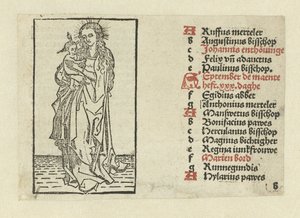 A Ruffus merteler
b Augustinus bisschop
c Johannis enthovinge
d Felix vñ adauctus
e Paulinus bisschop.
September de maente
heft .xxx. daghe
f Egidius abbet
g Anthonius merteler
A Manswetus bisschop
b Bonifacius pawes
c Herculanus bisschop
d Magnus bichtigher
e Regina iunkfrouwe
f Marien bord
g Kunnegundis
A Hylarius pawes